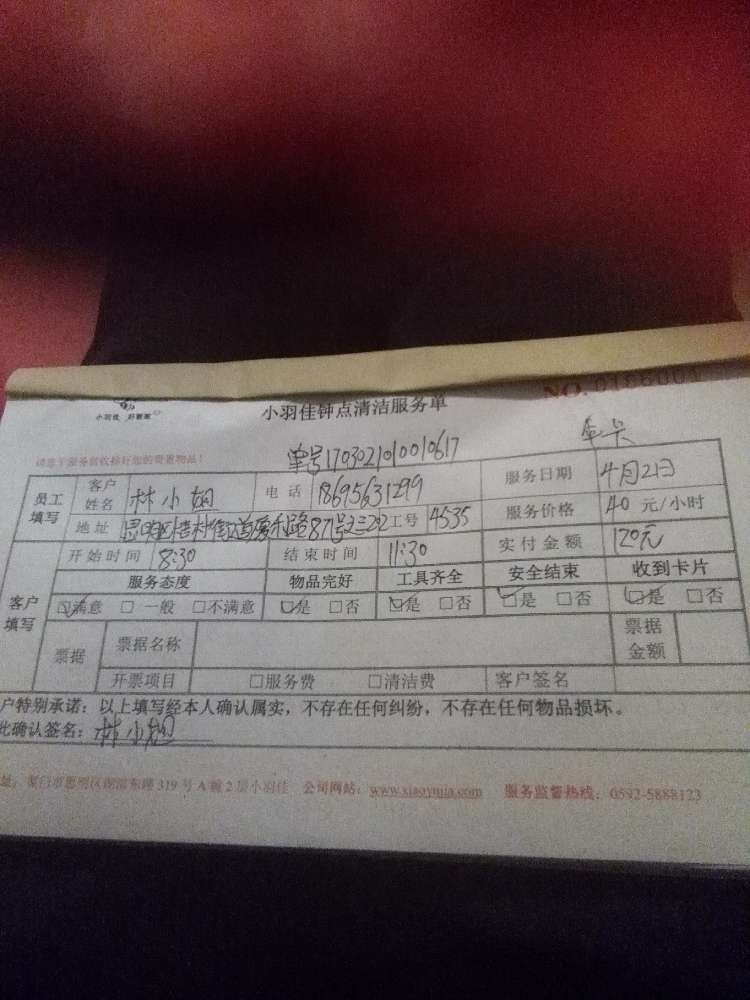 NO.0166001
小羽佳 好管家
小羽佳钟点清洁服务单
请您于服务前收拾好您的贵重物品!
单号1703021010010617
年卡
员工填写 客户姓名 林小姐 电话 18695631299 服务日期 4月2日
地址 思明区 街道 路87号之三202 工号 4535 服务价格 40 元/小时
客户填写 开始时间 8:30 结束时间 11:30 实付金额 120元
服务态度 物品完好 工具齐全 安全结束 收到卡片
☑满意 □一般 □不满意 ☑是 □否 ☑是 □否 ☑是 □否 ☑是 □否
票据 票据名称 票据金额
开票项目 □服务费 □清洁费 客户签名
户特别承诺:以上填写经本人确认属实,不存在任何纠纷,不存在任何物品损坏。
此确认签名:林小姐
址:厦门市思明区湖滨东路319号A幢2层小羽佳 公司网站:www.xiaoyujia.com 服务监督热线:0592-5888123